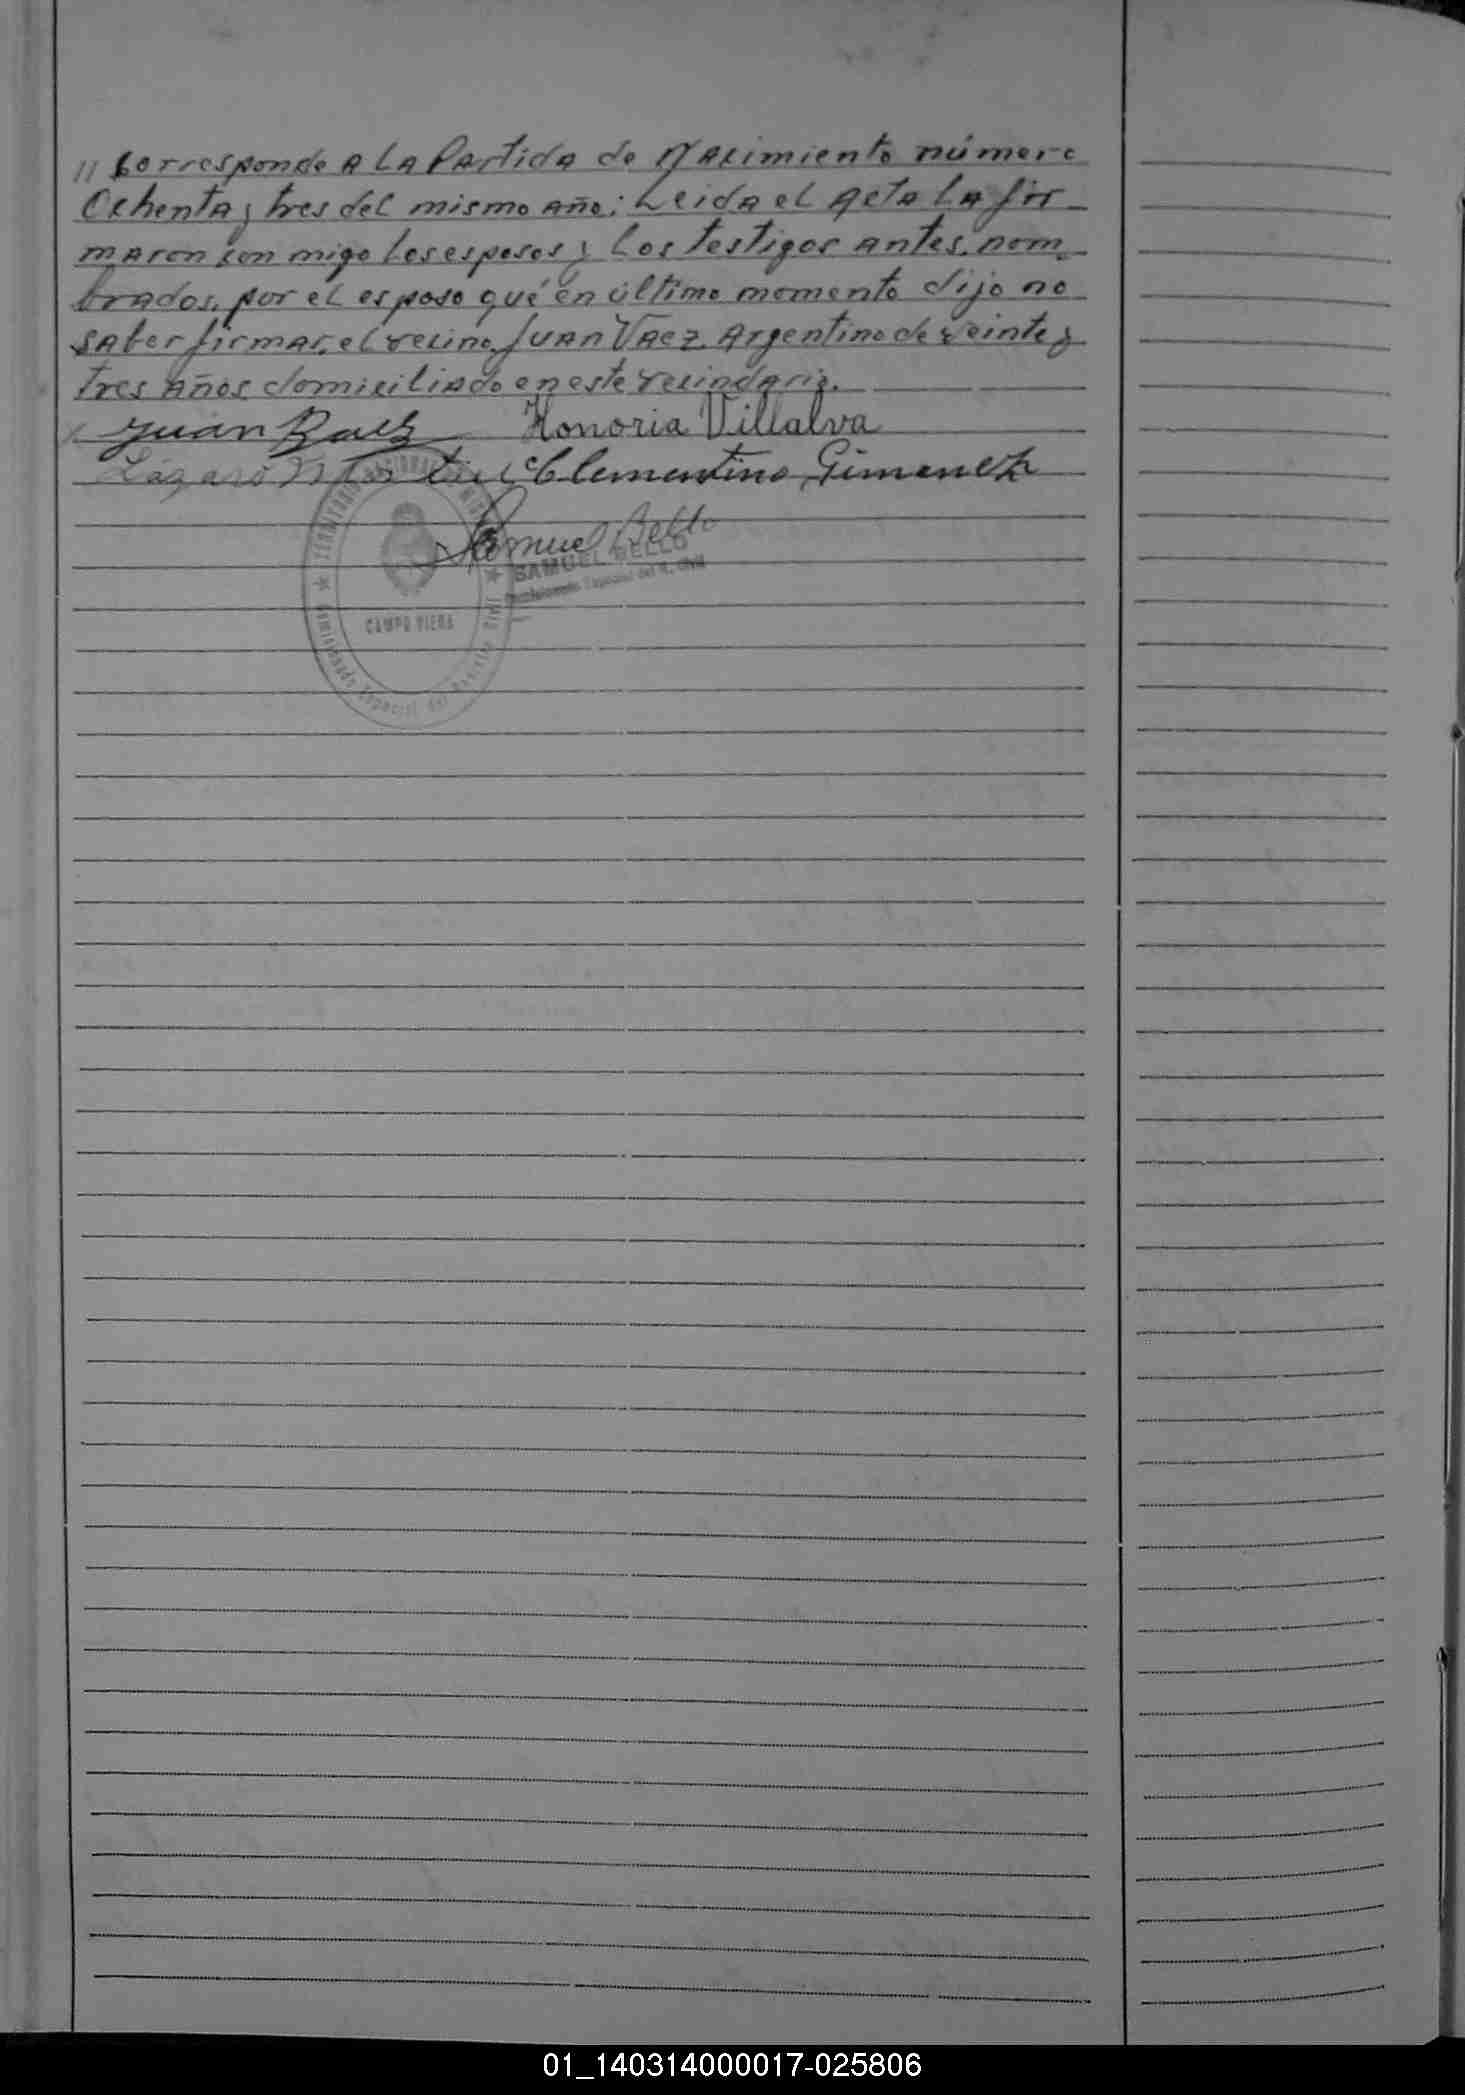 // Corresponde A LA Partida de Nacimiento número
Ochenta y tres del mismo año: Leida el Acta la fir-
maron con migo los esposos y los testigos antes nom-
brados, por el esposo qué en último momento dijo no
saber firmar, el vecino Juan Vaez Argentino de veinte y
tres años domiciliado en este vecindario.
Juan Baez Honoria Villalva
Lázaro Clementino Gimenez
Samuel Bello
SAMUEL BELLO
Comisionado Especial del R. Civil
TERRITORIO NACIONAL DE MISIONES
CAMPO VIERA
Comisionado Especial del Registro Civil
01_140314000017-025806